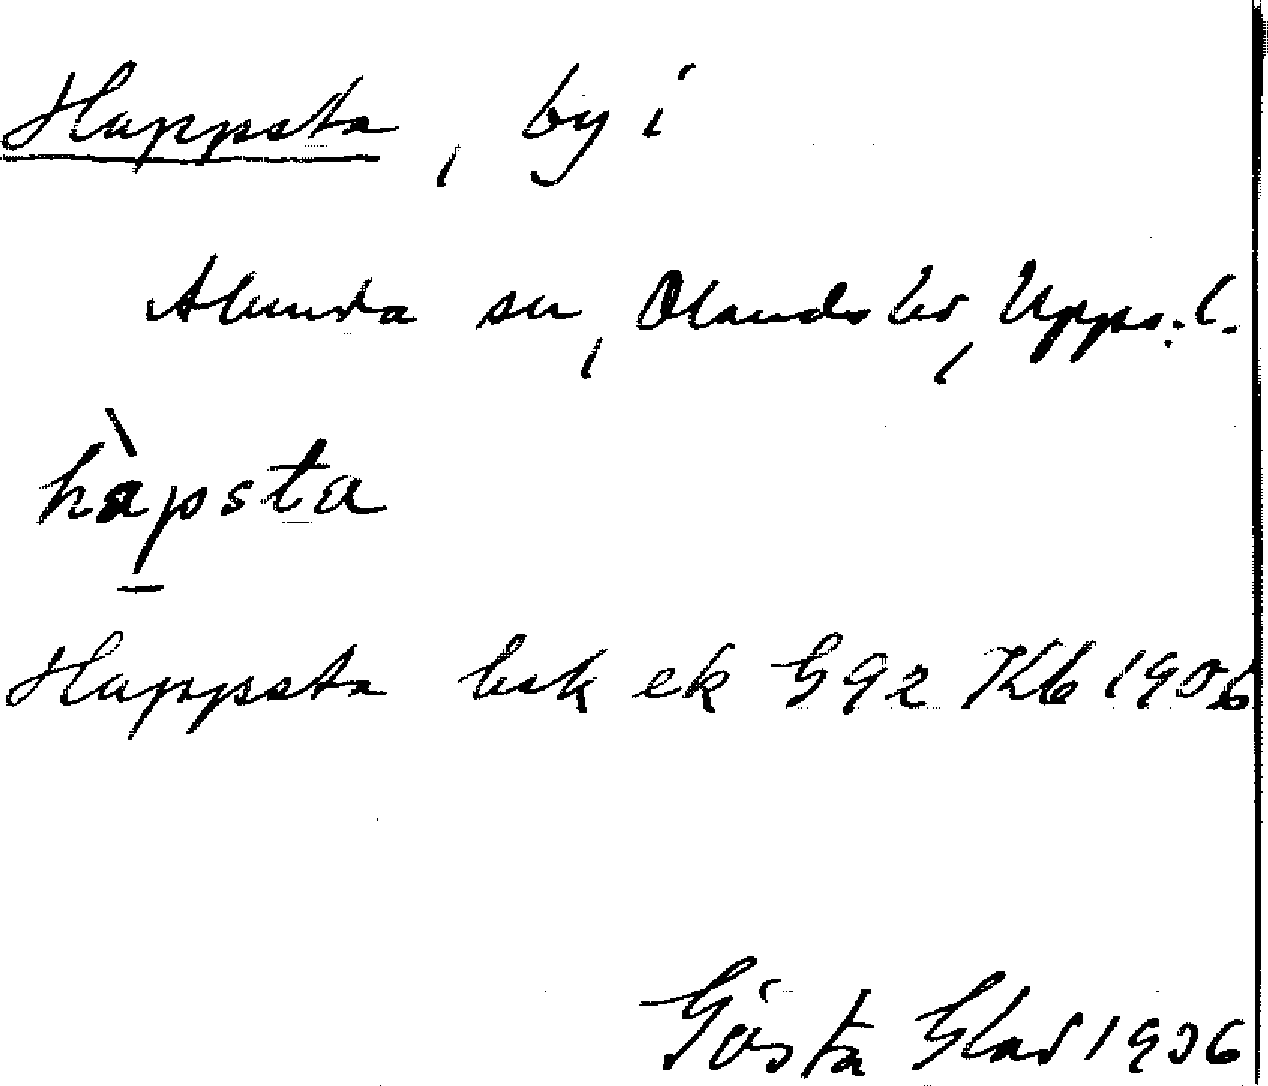 Happsta, by i
Alunda sn, Olands hd, Upps. l.
hàpsta
Happsta bsk ek G92 Kb 1906
Gösta Glad 1936